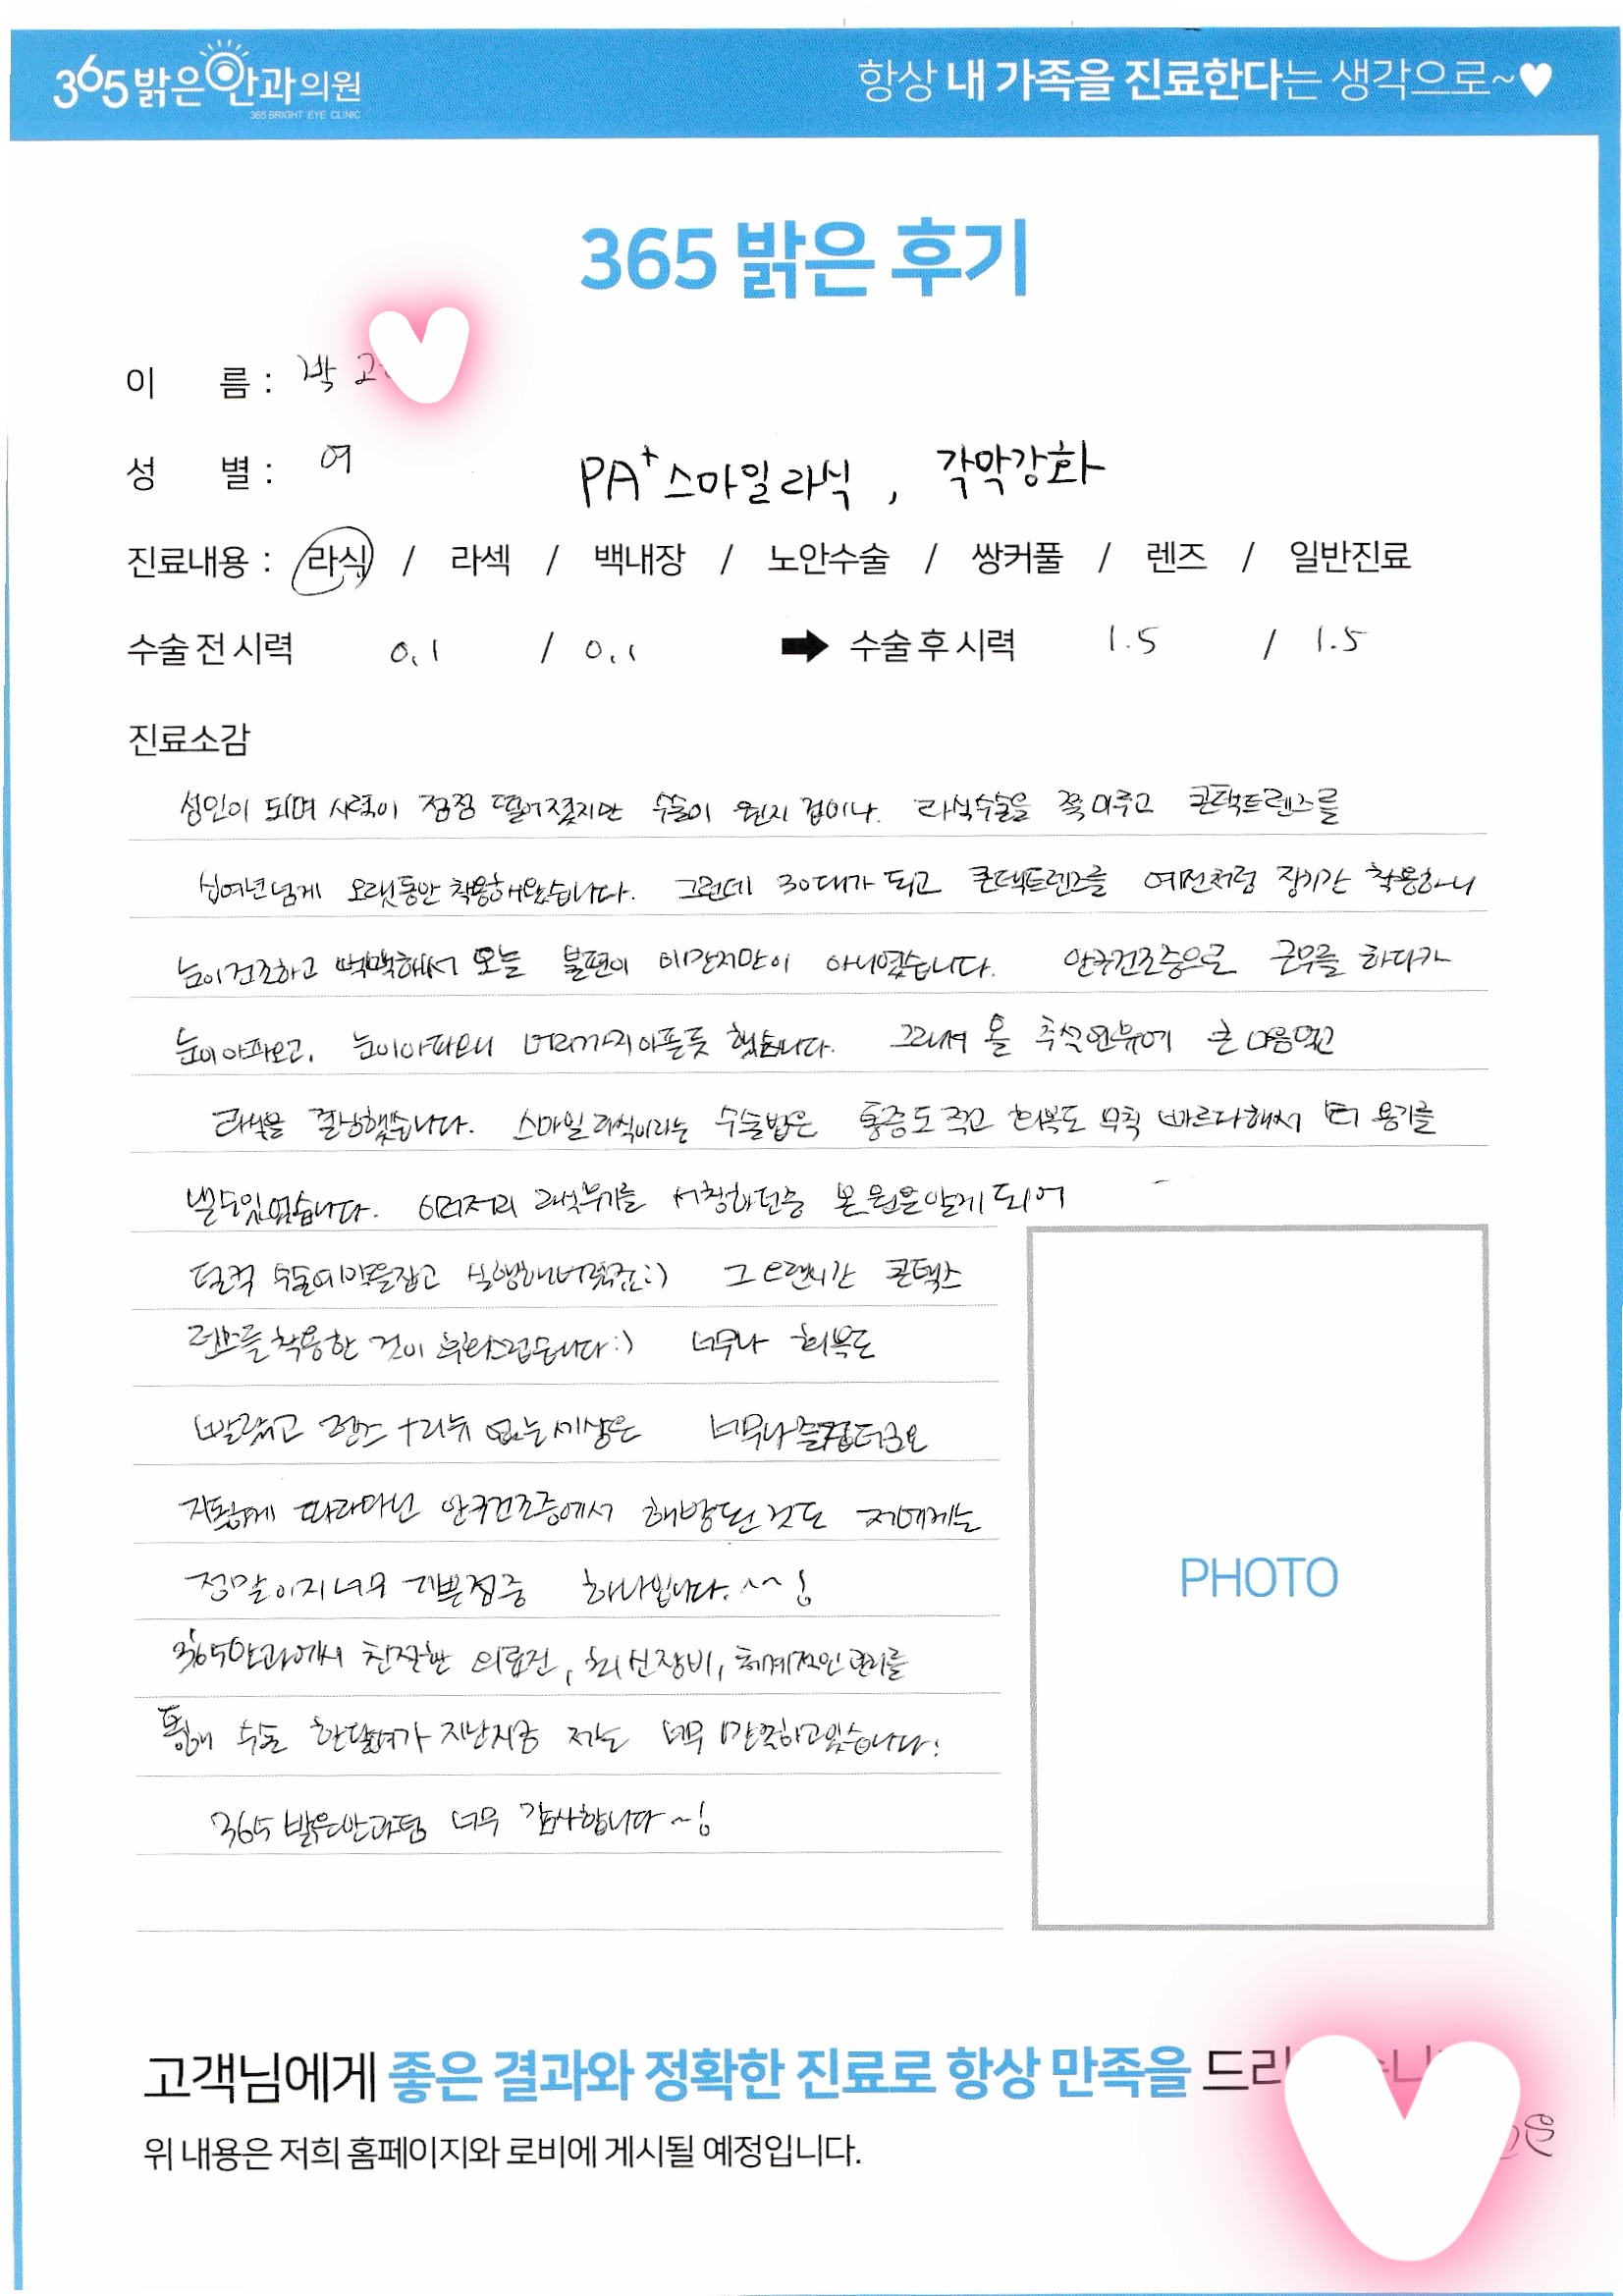 365 밝은안과의원
365 BRIGHT EYE CLINIC
항상 내 가족을 진료한다는 생각으로~♥
365 밝은 후기
이 름 : 박
성 별 : 여
PA+ 스마일라식, 각막강화
진료내용 : 라식 / 라섹 / 백내장 / 노안수술 / 쌍커풀 / 렌즈 / 일반진료
수술 전 시력 0.1 / 0.1 ➡ 수술 후 시력 1.5 / 1.5
진료소감
성인이 되며 시력이 점점 떨어졌지만 수술이 왠지 겁이나. 라식수술을 쭉 미루고 콘택트렌즈를
십여년넘게 오랫동안 착용해왔습니다. 그런데 30대가 되고 콘택트렌즈를 예전처럼 장기간 착용하니
눈이건조하고 뻑뻑해서 불편이 이만저만이 아니였습니다. 안구건조증으로 근무를 하다가
눈이아파오고, 눈이아파오니 머리까지아픈듯 했습니다. 그래서 올 추석연휴에 큰 마음먹고
라식을 결심했습니다. 스마일라식이라는 수술법은 통증도 적고 회복도 무척 빠르다해서 더 용기를
낼수있었습니다. 이리저리 라식후기를 서칭하던중 본 원을알게 되어
덜컥 수술예약을잡고 실행해버렸죠:) 그 오랜시간 콘택스
렌즈를 착용한 것이 후회스럽습니다:) 너무나 회복도
빨랐고 렌즈 트러블 없는세상은 너무나즐겁더군요
지독하게 따라다닌 안구건조증에서 해방된것도 저에게는
정말이지너무 기쁜점중 하나입니다.^^!
365안과에서 친절한 의료진, 최신장비, 체계적인 관리를
통해 수술 한달여가 지난지금 저는 너무 만족하고있습니다.
365 밝은안과팀 너무 감사합니다~!
PHOTO
고객님에게 좋은 결과와 정확한 진료로 항상 만족을 드리
위 내용은 저희 홈페이지와 로비에 게시될 예정입니다.